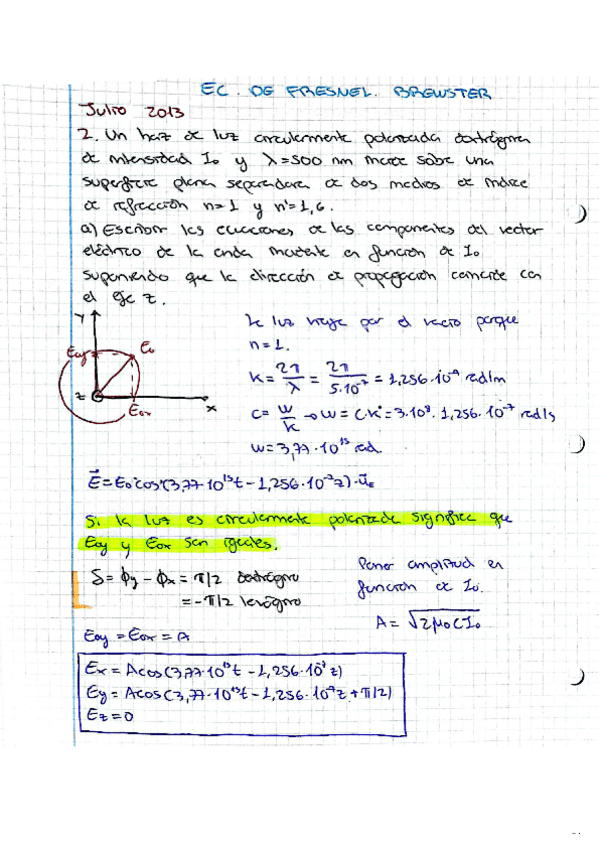 EC. DE FRESNEL. BREWSTER
Julio 2013
2. Un haz de luz circularmente polarizada dextrógira
de intensidad I₀ y λ=500 nm incide sobre una
superficie plana separadora de dos medios de índice
de refracción n=1 y n'=1,6.
a) Escribir las ecuaciones de las componentes del vector
eléctrico de la onda incidente en función de I₀
suponiendo que la dirección de propagación coincide con
el eje z.
Y
E₀y
E₀
z
E₀x
x
la luz viaja por el vacío porque
n=1.
K = 2π/λ = 2π/5·10⁻⁷ = 1,256·10⁻⁷ rad/m
c = w/k → w = c·k = 3·10⁸ · 1,256·10⁻⁷ rad/s
w = 3,77·10¹⁵ rad.
E⃗ = E₀·cos(3,77·10¹⁵t − 1,256·10⁻⁷z)·u⃗ₑ
Si la luz es circularmente polarizada significa que
E₀y y E₀x son iguales.
δ = ϕy − ϕx = π/2 dextrógiro
= −π/2 levógiro
Poner amplitud en
función de I₀.
A = √2μ₀cI₀
E₀y = E₀x = A
Ex = Acos(3,77·10¹⁵t − 1,256·10⁷z)
Ey = Acos(3,77·10¹⁵t − 1,256·10⁷z + π/2)
Ez = 0